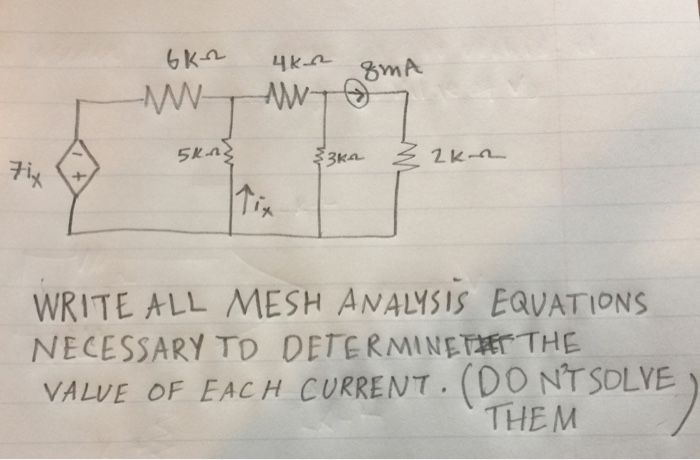 6K-Ω 4K-Ω 8mA
5K-Ω 3KΩ 2K-Ω
7ix - +
↑ix
WRITE ALL MESH ANALYSIS EQUATIONS
NECESSARY TO DETERMINE THE
VALUE OF EACH CURRENT. (DON'T SOLVE
THEM)